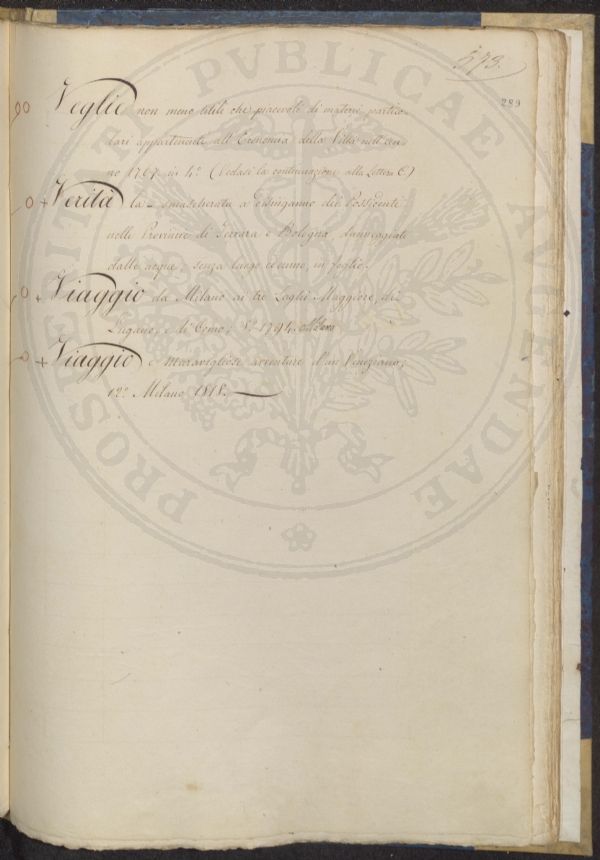 573.
289
Veglie non meno utili che piacevoli di materie partico-
lari appartenenti all'Economia della Villa nell'an-
no 1767 in 4º (Vedasi la continuazione alla Lettera C)
Verità la smascherata a disinganno dei Possidenti
nelle Provincie di Ferrara e Bologna, danneggiati
dalle acque, senza luogo ed anno, in foglio.
Viaggio da Milano ai tre Laghi Maggiore, di
Lugano, e di Como, 8º 1794. Milano
Viaggio e maravigliose avventure d'un Veneziano,
12º Milano 1818.
PROSPERITATI PVBLICAE AVGENDAE